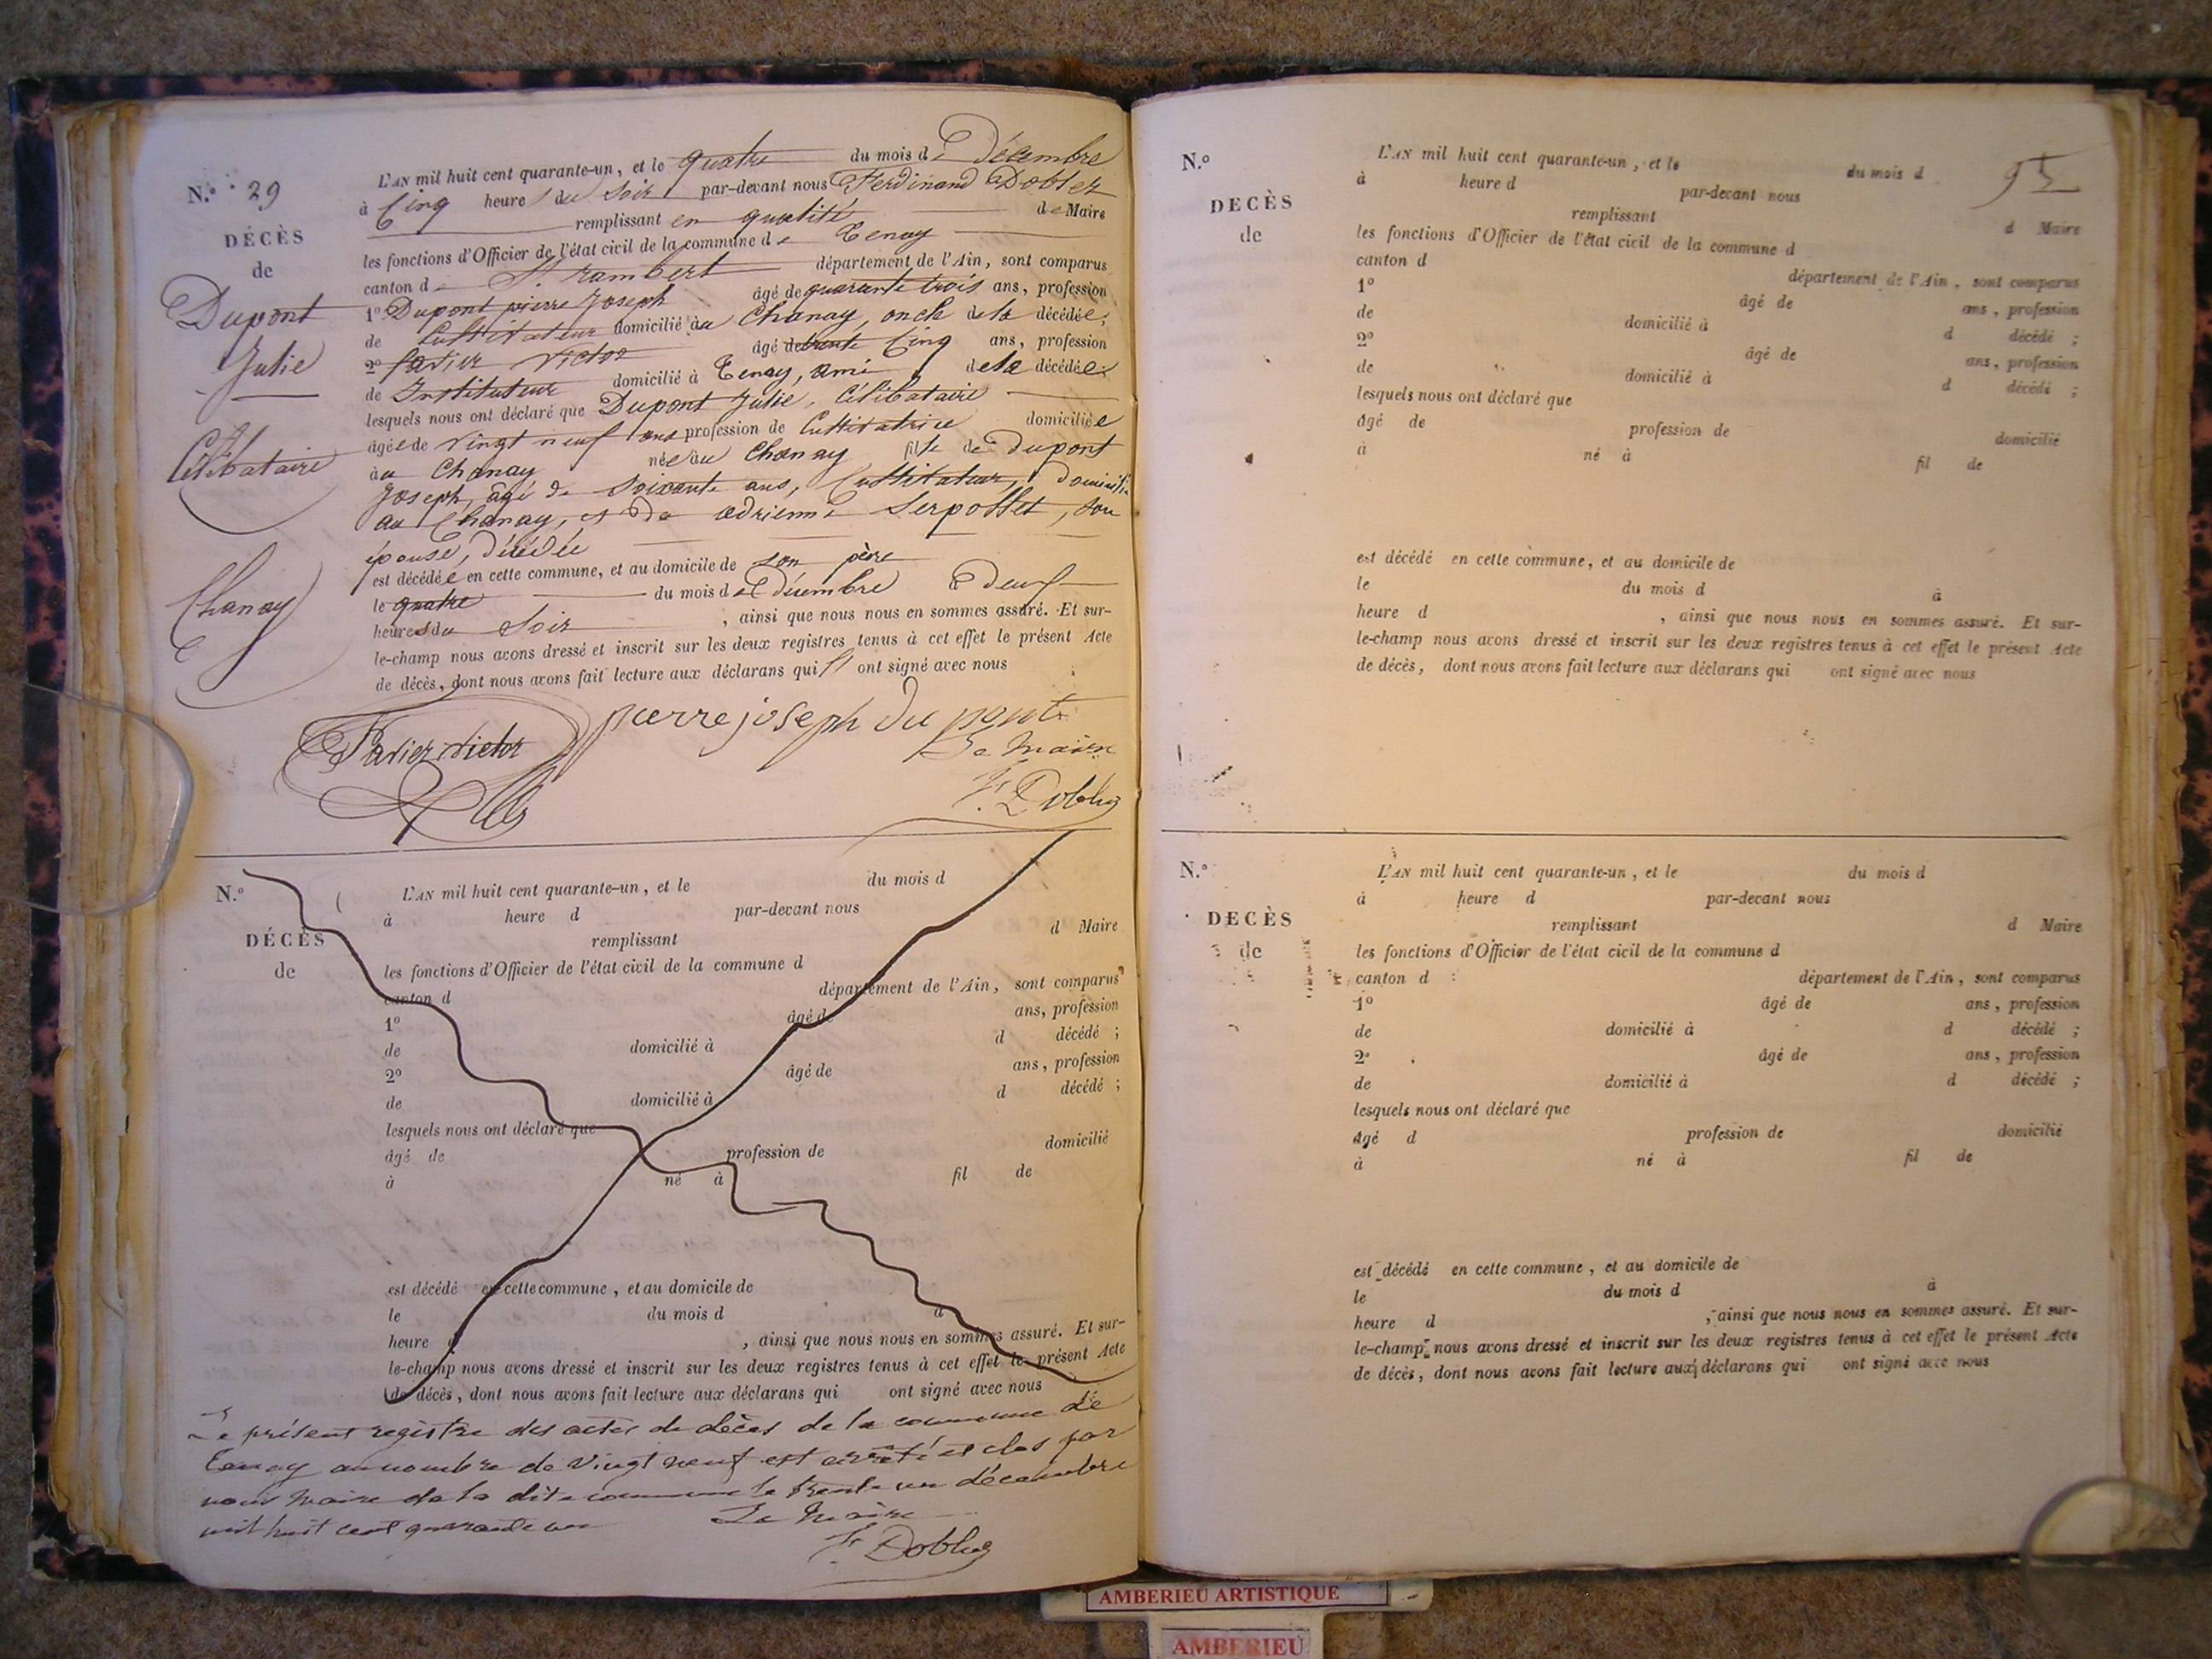 N.º 29
DÉCÈS
de
Dupont
Julie
Célibataire
Chanay
L'AN mil huit cent quarante-un, et le quatre du mois de Décembre
à Cinq heures du Soir par-devant nous Ferdinand Dobler
remplissant en qualité de Maire
les fonctions d'Officier de l'état civil de la commune de Tenay
canton de St. rambert département de l'Ain, sont comparus
1º Dupont pierre Joseph âgé de quarante trois ans, profession
de Cultivateur domicilié au Chanay, oncle de la décédée;
2º favier Victor âgé de trente Cinq ans, profession
de Instituteur domicilié à Tenay, ami de la décédée;
lesquels nous ont déclaré que Dupont Julie, Célibataire
âgée de vingt neuf ans profession de Cultivatrice domiciliée
au Chanay née au Chanay fille de Dupont
Joseph, âgé de Soixante ans, Cultivateur, domicilié
au Chanay, et de adrienne Serpollet, son
épouse, décédée
est décédée en cette commune, et au domicile de son père
le quatre du mois de Décembre à Deux
heures du Soir, ainsi que nous nous en sommes assuré. Et sur-
le-champ nous avons dressé et inscrit sur les deux registres tenus à cet effet le présent Acte
de décès, dont nous avons fait lecture aux déclarans qui ont signé avec nous
pierre joseph du pont
Favier Victor
Le Maire
F. Dobler
N.º
DÉCÈS
de
L'AN mil huit cent quarante-un, et le du mois d
à heure d par-devant nous
remplissant d Maire
les fonctions d'Officier de l'état civil de la commune d
canton d département de l'Ain, sont comparus
1º âgé de ans, profession
de domicilié à d décédé ;
2º âgé de ans, profession
de domicilié à d décédé ;
lesquels nous ont déclaré que
âgé de profession de domicilié
à né à fil de
est décédé en cette commune, et au domicile de
le du mois d à
heure d , ainsi que nous nous en sommes assuré. Et sur-
le-champ nous avons dressé et inscrit sur les deux registres tenus à cet effet le présent Acte
de décès, dont nous avons fait lecture aux déclarans qui ont signé avec nous
Le présent registre des actes de décès de la commune de
Tenay au nombre de vingt neuf est arrêté et clos par
nous Maire de la dite commune le trente un décembre
mil huit cent quarante un
Le Maire
F. Dobler
95
N.º
DECÈS
de
L'AN mil huit cent quarante-un, et le du mois d
à heure d par-devant nous
remplissant d Maire
les fonctions d'Officier de l'état civil de la commune d
canton d département de l'Ain, sont comparus
1º âgé de ans, profession
de domicilié à d décédé ;
2º âgé de ans, profession
de domicilié à d décédé ;
lesquels nous ont déclaré que
âgé de profession de domicilié
à né à fil de
est décédé en cette commune, et au domicile de
le du mois d à
heure d , ainsi que nous nous en sommes assuré. Et sur-
le-champ nous avons dressé et inscrit sur les deux registres tenus à cet effet le présent Acte
de décès, dont nous avons fait lecture aux déclarans qui ont signé avec nous
N.º
DECÈS
de
L'AN mil huit cent quarante-un, et le du mois d
à heure d par-devant nous
remplissant d Maire
les fonctions d'Officier de l'état civil de la commune d
canton d département de l'Ain, sont comparus
1º âgé de ans, profession
de domicilié à d décédé ;
2º âgé de ans, profession
de domicilié à d décédé ;
lesquels nous ont déclaré que
âgé d profession de domicilié
à né à fil de
est décédé en cette commune, et au domicile de
le du mois d à
heure d , ainsi que nous nous en sommes assuré. Et sur-
le-champ nous avons dressé et inscrit sur les deux registres tenus à cet effet le présent Acte
de décès, dont nous avons fait lecture aux déclarans qui ont signé avec nous
AMBERIEU ARTISTIQUE
AMBERIEU